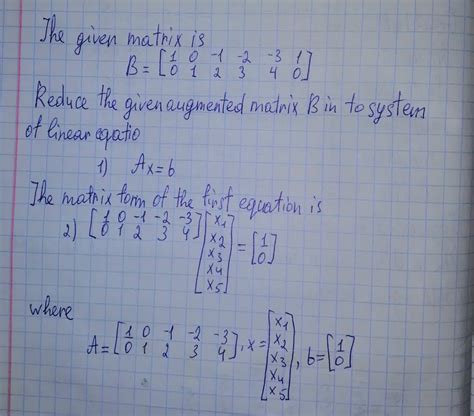 The given matrix is
B = [1 0 -1 -2 -3 1
0 1 2 3 4 0]
Reduce the given augmented matrix B in to system
of linear eqatio
1) Ax = b
The matrix form of the first equation is
2) [1 0 -1 -2 -3
0 1 2 3 4] [x1
x2
x3
x4
x5] = [1
0]
where
A = [1 0 -1 -2 -3
0 1 2 3 4], x = [x1
x2
x3
x4
x5], b = [1
0]